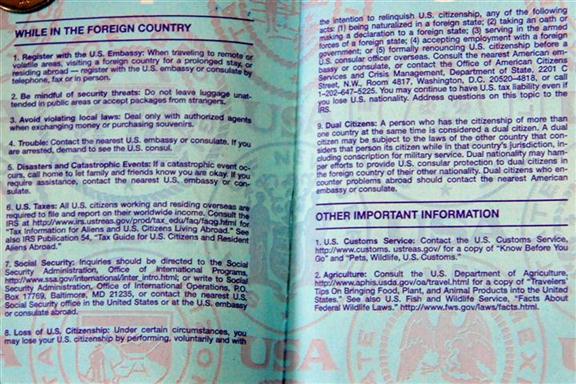 WHILE IN THE FOREIGN COUNTRY
1. Register with the U.S. Embassy: When traveling to remote or
volatile areas, visiting a foreign country for a prolonged stay, or
residing abroad — register with the U.S. embassy or consulate by
telephone, fax or in person.
2. Be mindful of security threats: Do not leave luggage unat-
tended in public areas or accept packages from strangers.
3. Avoid violating local laws: Deal only with authorized agents
when exchanging money or purchasing souvenirs.
4. Trouble: Contact the nearest U.S. embassy or consulate. If you
are arrested, demand to see the U.S. consul.
5. Disasters and Catastrophic Events: If a catastrophic event oc-
curs, call home to let family and friends know you are okay. If you
require assistance, contact the nearest U.S. embassy or con-
sulate.
6. U.S. Taxes: All U.S. citizens working and residing overseas are
required to file and report on their worldwide income. Consult the
IRS at http://www.irs.ustreas.gov/prod/tax_edu/faq/faqg.html for
"Tax Information for Aliens and U.S. Citizens Living Abroad." See
also IRS Publication 54, "Tax Guide for U.S. Citizens and Resident
Aliens Abroad."
7. Social Security: Inquiries should be directed to the Social
Security Administration, Office of International Programs,
http://www.ssa.gov/international/inter_intro.html; or write to Social
Security Administration, Office of International Operations, P.O.
Box 17769, Baltimore, MD 21235, or contact the nearest U.S.
Social Security office in the United States or at the U.S. embassy
or consulate abroad.
8. Loss of U.S. Citizenship: Under certain circumstances, you
may lose your U.S. citizenship by performing, voluntarily and with
the intention to relinquish U.S. citizenship, any of the following
acts: (1) being naturalized in a foreign state; (2) taking an oath or
making a declaration to a foreign state; (3) serving in the armed
forces of a foreign state; (4) accepting employment with a foreign
government; or (5) formally renouncing U.S. citizenship before a
U.S. consular officer overseas. Consult the nearest American em-
bassy or consulate, or contact the Office of American Citizens
Services and Crisis Management, Department of State, 2201 C
Street, N.W., Room 4817, Washington, D.C. 20520-4818, or call
1-202-647-5225. You may continue to have U.S. tax liability even if
you lose U.S. nationality. Address questions on this topic to the
IRS.
9. Dual Citizens: A person who has the citizenship of more than
one country at the same time is considered a dual citizen. A dual
citizen may be subject to the laws of the other country that con-
siders that person its citizen while in that country's jurisdiction, in-
cluding conscription for military service. Dual nationality may ham-
per efforts to provide U.S. consular protection to dual citizens in
the foreign country of their other nationality. Dual citizens who en-
counter problems abroad should contact the nearest American
embassy or consulate.
OTHER IMPORTANT INFORMATION
1. U.S. Customs Service: Contact the U.S. Customs Service,
http://www.customs. ustreas.gov/ for a copy of "Know Before You
Go" and "Pets, Wildlife, U.S. Customs."
2. Agriculture: Consult the U.S. Department of Agriculture,
http://www.aphis.usda.gov/oa/travel.html for a copy of "Travelers
Tips On Bringing Food, Plant, and Animal Products into the United
States." See also U.S. Fish and Wildlife Service, "Facts About
Federal Wildlife Laws." http://www.fws.gov/laws/facts.html.
USA
USA